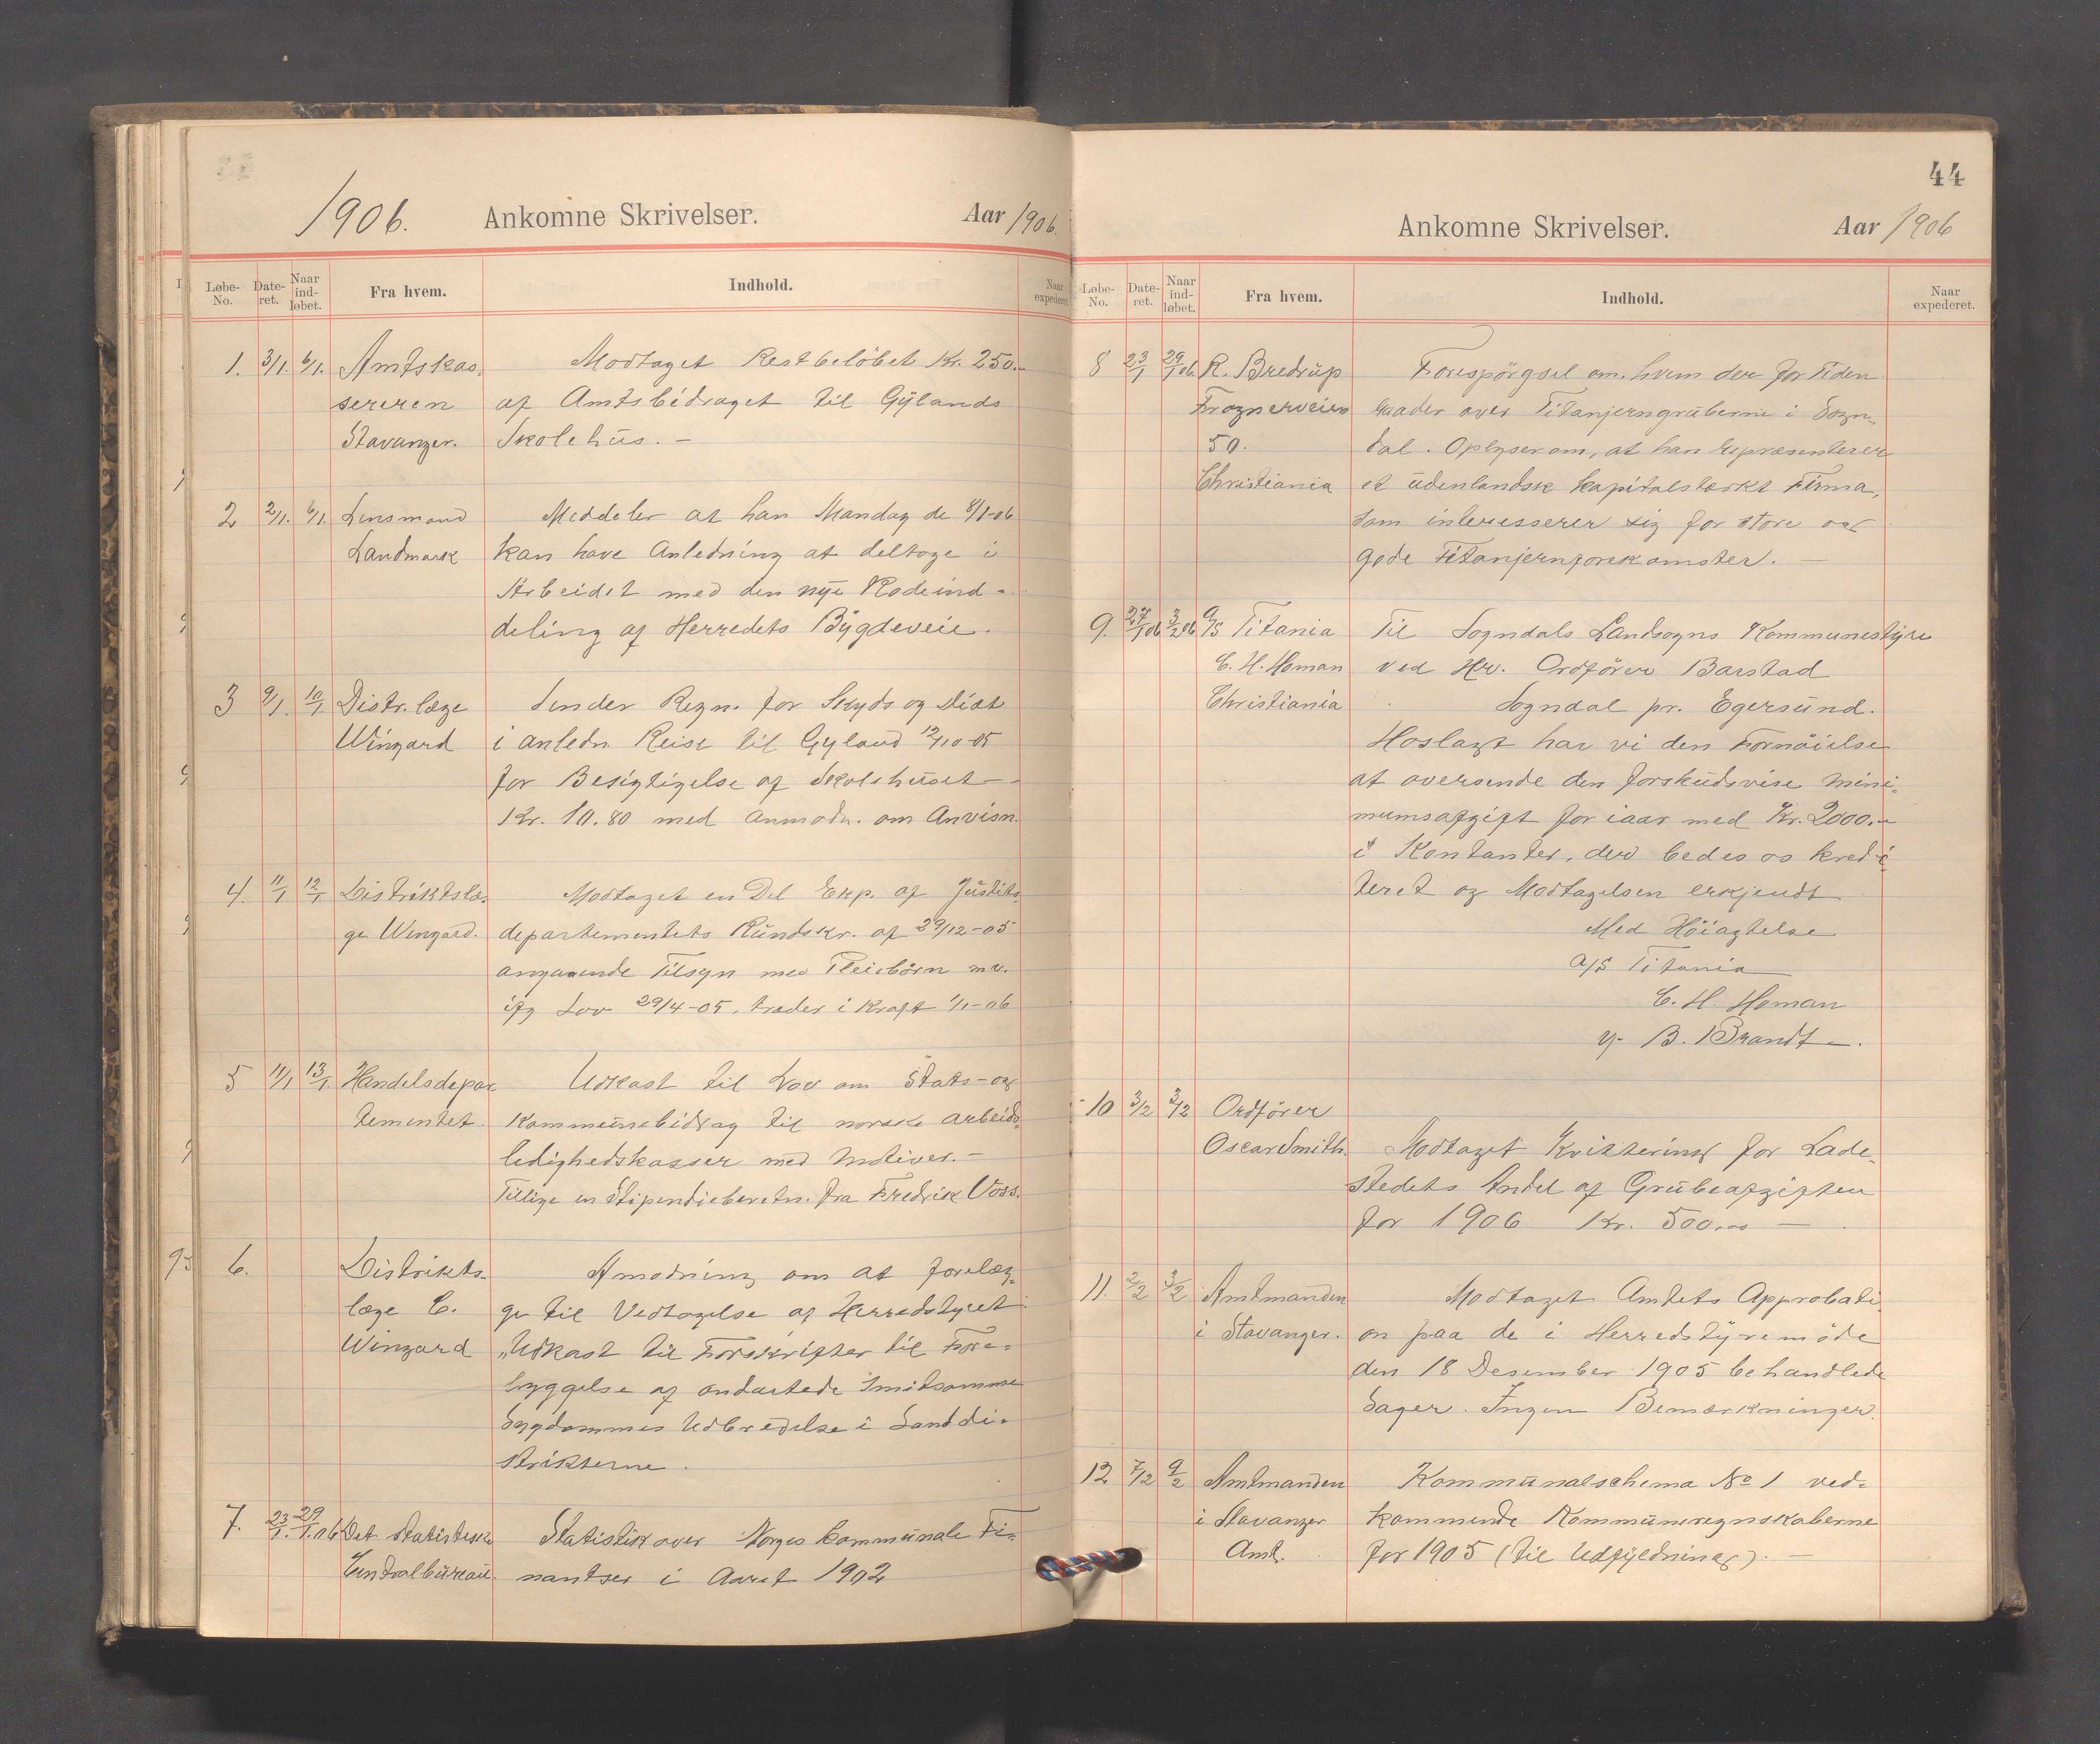 1906. Ankomne Skrivelser. Aar 1906.
Løbe-No. Dateret. Naar indløbet. Fra hvem. Indhold. Naar expederet
1. 3/1. 6/1. Amtskas- Modtaget Restbeløbet Kr. 250.-
sereren af Amtsbidraget til Gylands
Stavanger. Skolehus. -
2 2/1. 6/1. Lensmand Meddeler at han Mandag de 8/1-06
Landmark kan have Anledning at deltage i
Arbeidet med den nye Rodeind-
deling af Herredets Bygdeveie.
3 9/1. 10/1 Distr.læge Sender Regn. for Skyds og Diæt
Wingard i anledn Reise til Gyland 12/10-05
for Besigtigelse af Skolehuset -
Kr. 10.80 med anmodn. om Anvisn.
4. 11/1 12/1 Distriktslæ- Modtaget en Del Exp. af Justits
ge Wingard. departementets Rundskr. af 29/12-05
angaaende Tilsyn med Pleiebörn m.v.
ifg Lov 29/4-05, træder i Kraft 1/1-06
5 11/1 13/1. Handelsdepar- Udkast til Lov om Stats- og
tementet. Kommunebidrag til norske arbeids-
ledighedskasser med Motiver. -
Tillige en Stipendieberetn. fra Fredrik Voss.
6. Distrikts- Amodning om at forelæg-
læge C. ge til Vedtagelse af Herredstyret
Wingard „Udkast til Forskrifter til Fore-
byggelse af ondartede smitsomme
Sygdommes Udbredelse i Landdi-
strikterne.
7. 23/1. 29/1.06 Det statistiske Statistik over Norges kommunale Fi-
Centralbureau. nantser i Aaret 1902
44
Ankomne Skrivelser. Aar 1906
Løbe-No. Dateret. Naar indløbet. Fra hvem. Indhold. Naar expederet.
8 23/1 29/1 06 R. Bredrup Forespörgsel om. hvem der for Tiden
Frognerveien raader over Titanjerngruberne i Sogn-
50. dal. Oplyser om, at han repræsenterer
Christiania et udenlandsk kapitalstærkt Firma,
som interesserer sig for store og
gode Titanjernforekomster. -
9. 27/1 06 3/2 06 A/S Titania Til Sogndals Landsogns Kommunestyre
C. H. Homan ved Hr. Ordförer Barstad
Christiania Sogndal pr. Egersund.
Hoslagt har vi den Fornöielse
at oversende den forskudsvise mini-
mumsafgift for iaar med Kr. 2000.-
i Kontanter, der bedes os kredi-
teret og Modtagelsen erkjendt
Med Höiagtelse
A/S Titania
C. H. Homan
B. Brandt -.
10 3/2 3/2 Ordförer
Oscar Smith. Modtaget Kvittering for Lade-
stedets Andel af Grubeafgiften
for 1906 Kr. 500.00 -
11. 2/2 3/2 Amtmanden Modtaget Amtets Approbati-
i Stavanger. on paa de i Herredstyremöde
den 18 Desember 1905 behandlede
Sager. Ingen Bemærkninger.
12 7/2 9/2 Amtmanden Kommunalschema No 1 ved-
i Stavanger kommende Kommuneregnskaberne
Amt. for 1905 (til Udfyldning). -